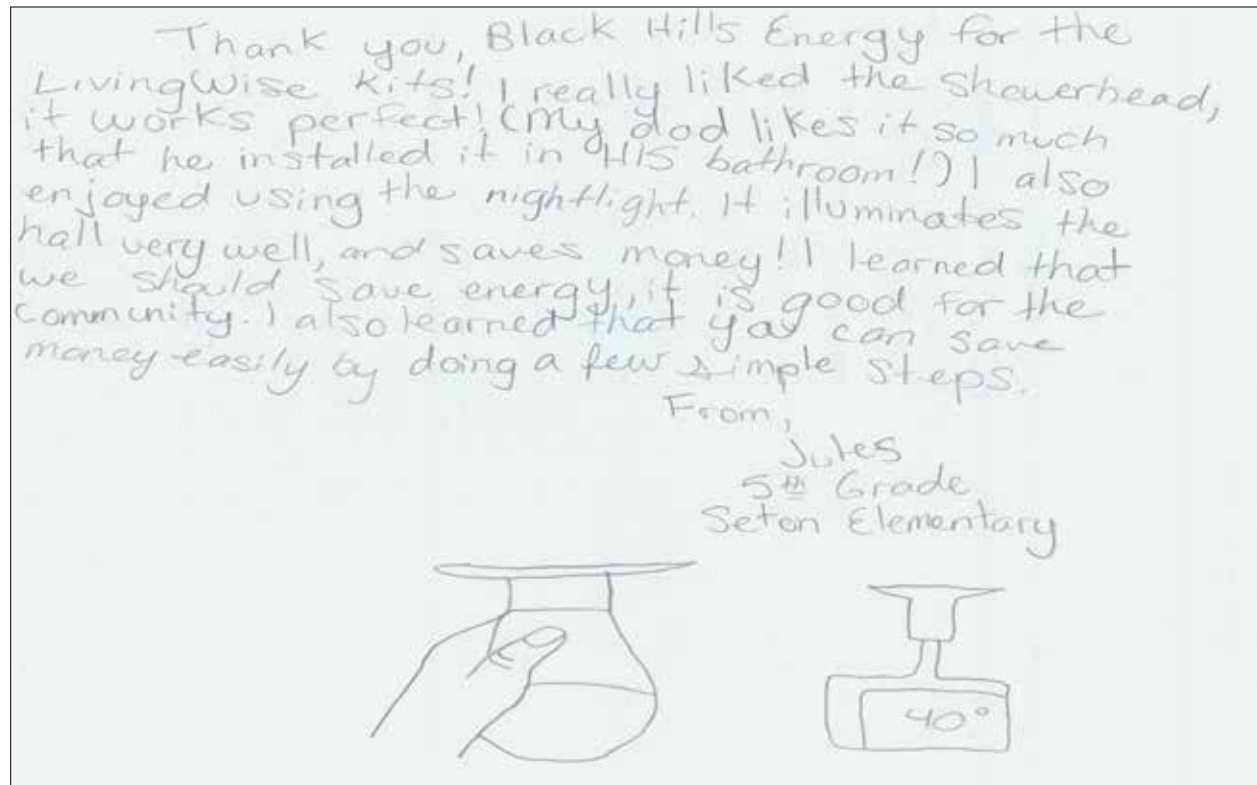 Thank you, Black Hills Energy for the
LivingWise Kits! I really liked the showerhead,
it works perfect! (My dad likes it so much
that he installed it in HIS bathroom!) I also
enjoyed using the nightlight. It illuminates the
hall very well, and saves money! I learned that
we should save energy, it is good for the
community. I also learned that you can save
money easily by doing a few simple steps.
From,
Jules
5th Grade
Seton Elementary
40°